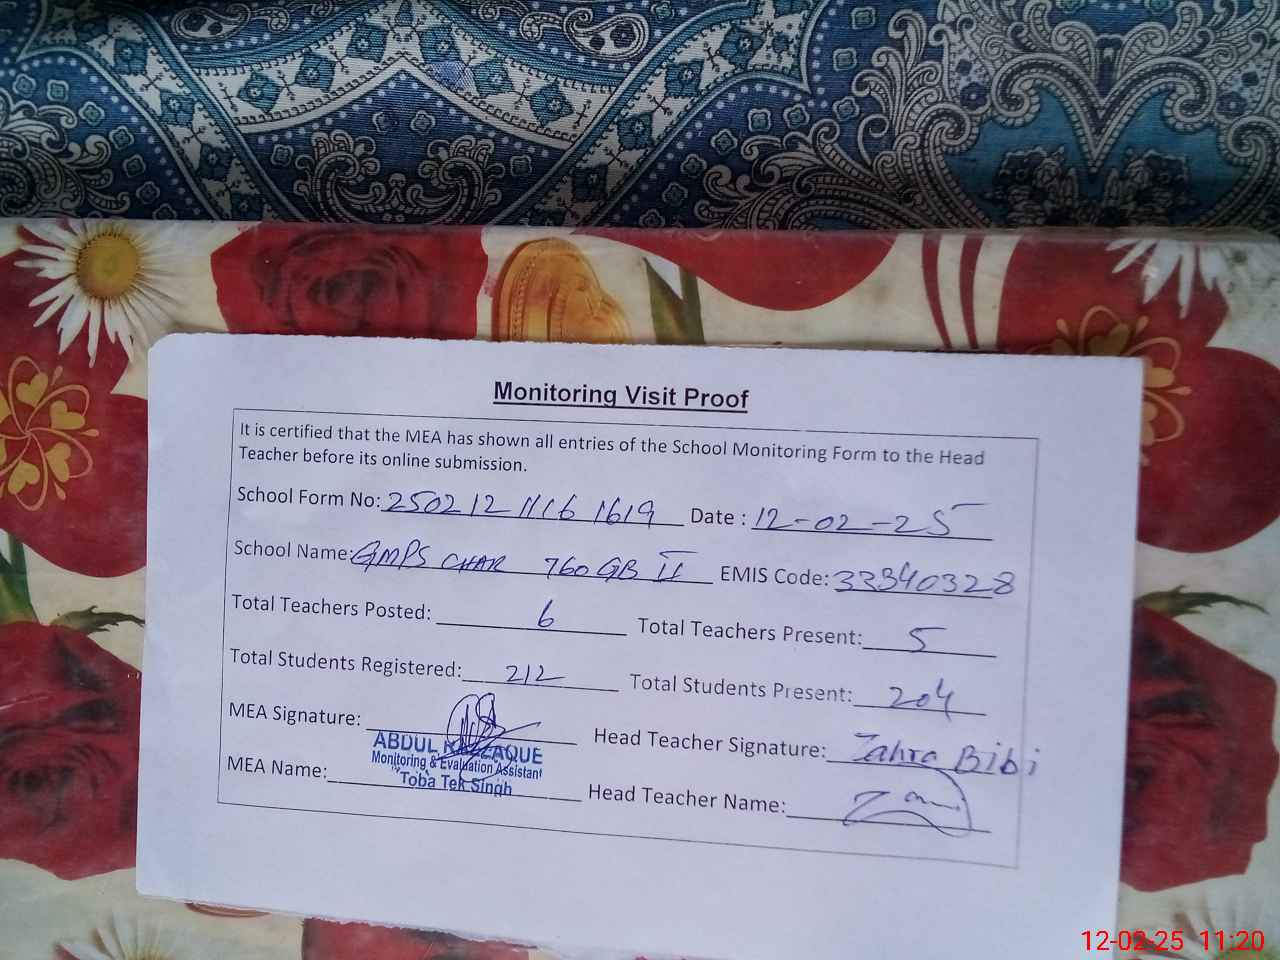 Monitoring Visit Proof
It is certified that the MEA has shown all entries of the School Monitoring Form to the Head
Teacher before its online submission.
School Form No: 250212 1116 1619 Date : 12-02-25
School Name: GMPS CHAR 760 GB II EMIS Code: 33340328
Total Teachers Posted: 6 Total Teachers Present: 5
Total Students Registered: 212 Total Students Present: 204
MEA Signature: Head Teacher Signature: Zahra Bibi
ABDUL RAZZAQUE
Monitoring & Evaluation Assistant
Toba Tek Singh
MEA Name: Head Teacher Name:
12-02-25 11:20